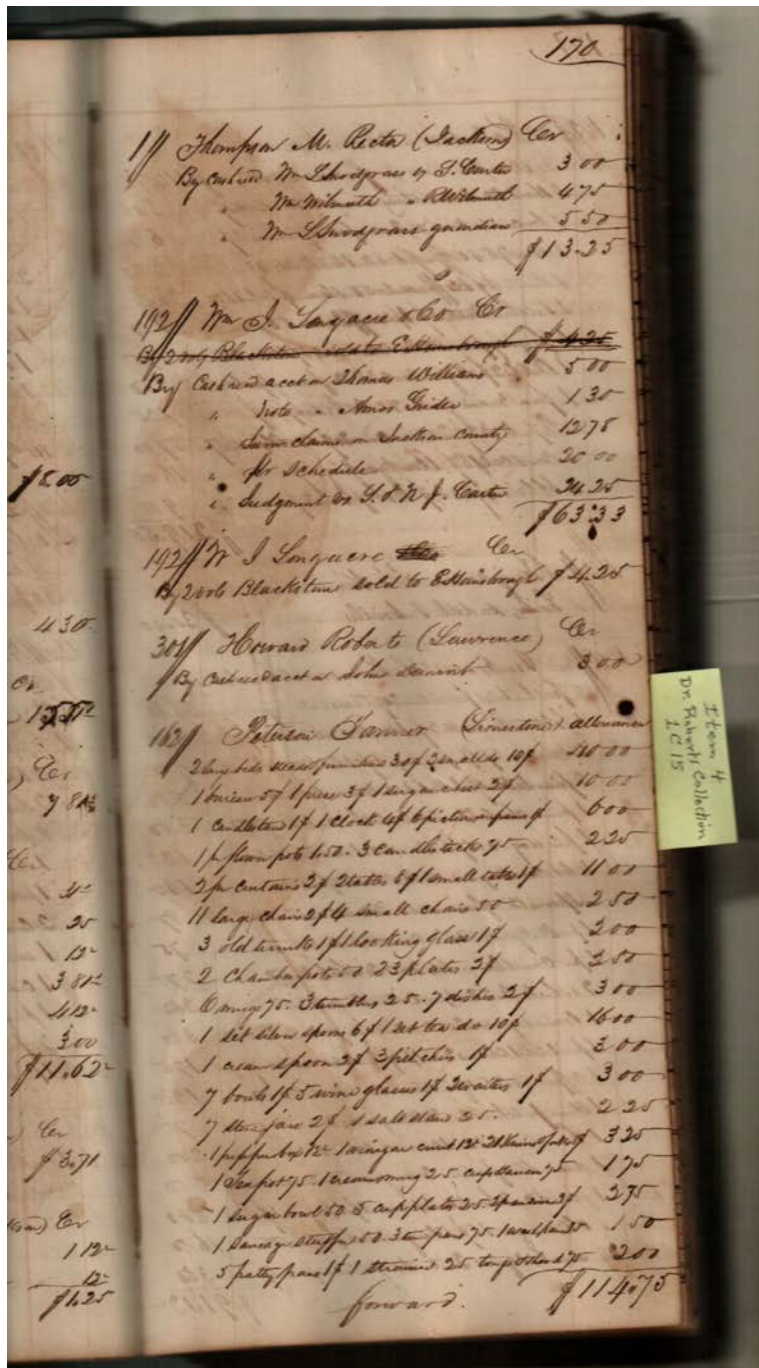 170
1 // Thompson M. Rector (Jackson) Cr
By Cash recd Wm Snodgrass & S. Carter 3 00
" Wm Wilmuth " 4 75
" Wm Snodgrass guardian 5 50
$13.25
192 // Wm J. Longacre & Co Cr
By 2 vols Blackstone sold to E Hansbrough $4.25
By Cash recd acct on Thomas Williams 5 00
" Note " Amos Grider 1.30
" Sum claim on Jackson County 12 78
" pr Schedule 20 00
" Judgment vs S. & N. J. Carter 24 25
$63.33
192 // W J Longacre Cr
By 2 vols Blackstone sold to E Hansbrough $4.25
301 // Howard Roberts (Lawrence) Cr
By Cash recd acct on John 3 00
162 // Peterson Tanner (Limestone) allowance
2 large beds steads furniture 30$ 2 small do 10$ 40 00
1 bureau 5$ 1 press 3$ 1 sugar chest 2$ 10 00
1 candlestand 1$ 1 clock 4$ 6 pictures in frame 1$ 6 00
1 pr flower pots 1.50. 3 candlesticks 75 2 25
2 pr curtains 2$ 2 tables 8$ 1 small table 1$ 11 00
11 large chairs 2$ 4 small chairs 50 2 50
3 old trunks 1$ 1 looking glass 1$ 2 00
2 Chamber pots 50 23 plates 2$ 2 50
6 mugs 75. 3 tumblers 25. 7 dishes 2$ 3 00
1 set silver spoons 6$ 1 set tea do 10$ 16 00
1 cream spoon 2$ 3 pitchers 1$ 3 00
7 bowls 1$ 5 wine glasses 1$ 2 waiters 1$ 3 00
7 stone jars 2$ 1 salt stand 25. 2 25
1 pepper box 12 1 vinegar cruet 12 21 Knives & forks 3$ 3 25
1 Tea pot 75. 1 cream mug 25. cups & saucers 75 1 75
1 sugar bowl 50 5 cup plates 25 2$ 2 75
1 sausage stuffer 50. 3 tin pans 75. 1 wash pan 25 1 50
5 patty pans 1$ 1 strainer 25 tongs & shovel 75 2 00
forward. $114.75
$8.00
4 30
Cr
Cr
7 81
Cr
25
12
3 81
4 12
3 00
$11.62
Cr
$3.71
Cr
1 12
12
$1.25
Item 4
Dr. Roberts Collection
LC15